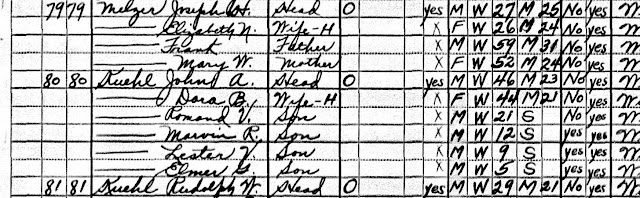 79 79 Melzer Joseph H. Head O yes M W 27 M 25 No yes M
Elizabeth N. Wife-H x F W 26 M 24 No yes M
Frank Father x M W 59 M 31 No yes M
Mary W. Mother x F W 52 M 24 No yes M
80 80 Kuehl John A. Head O yes M W 46 M 23 No yes M
Dora B. Wife-H x F W 44 M 21 No yes M
Romond V. Son x M W 21 S No yes M
Marvin R. Son x M W 12 S yes yes M
Lester V. Son x M W 9 S yes yes M
Elmer G. Son x M W 5 S yes yes M
81 81 Kuehl Rudolph W. Head O yes M W 29 M 21 No yes M